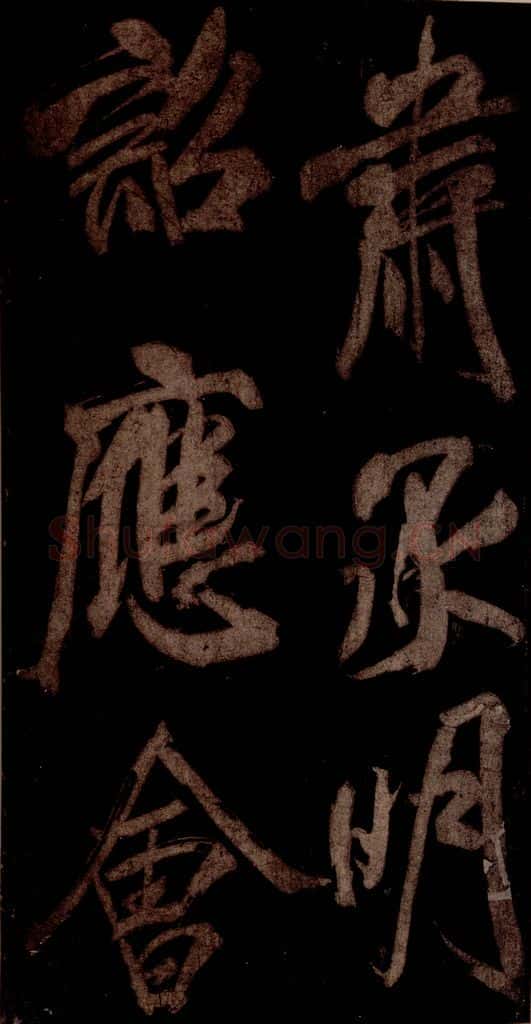 肅承明
詔應會
Shufawang.CN